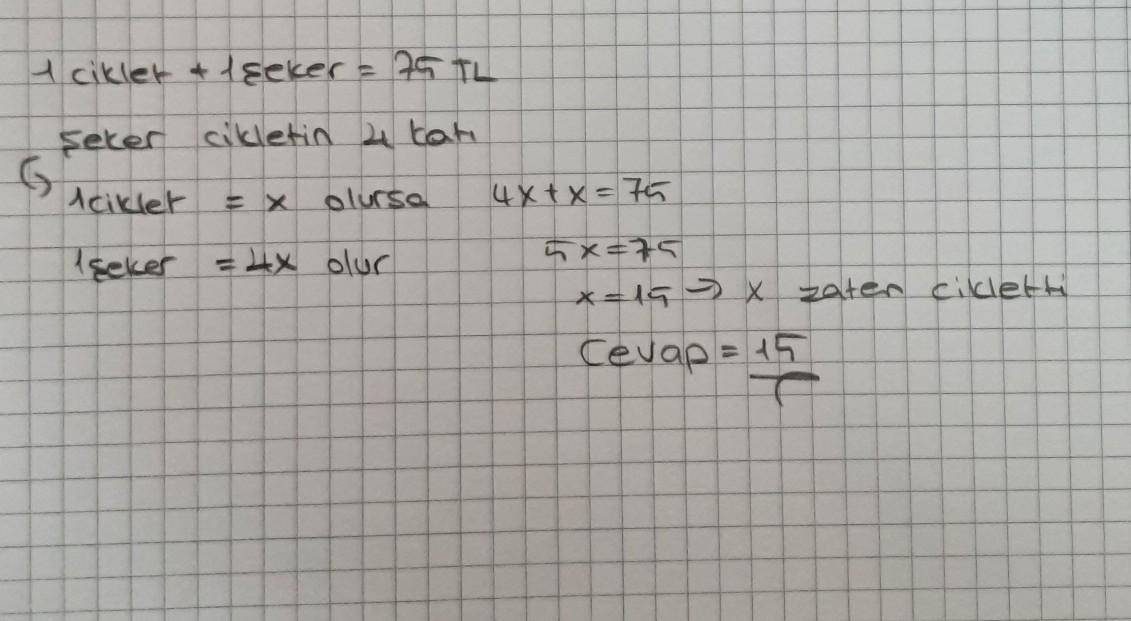 1 ciklet + 1 şeker = 75 TL
Şeker cikletin 4 katı
1 ciklet = x olursa 4x + x = 75
1 şeker = 4x olur 5x = 75
x = 15 ⇒ x zaten cikletti
Cevap = 15